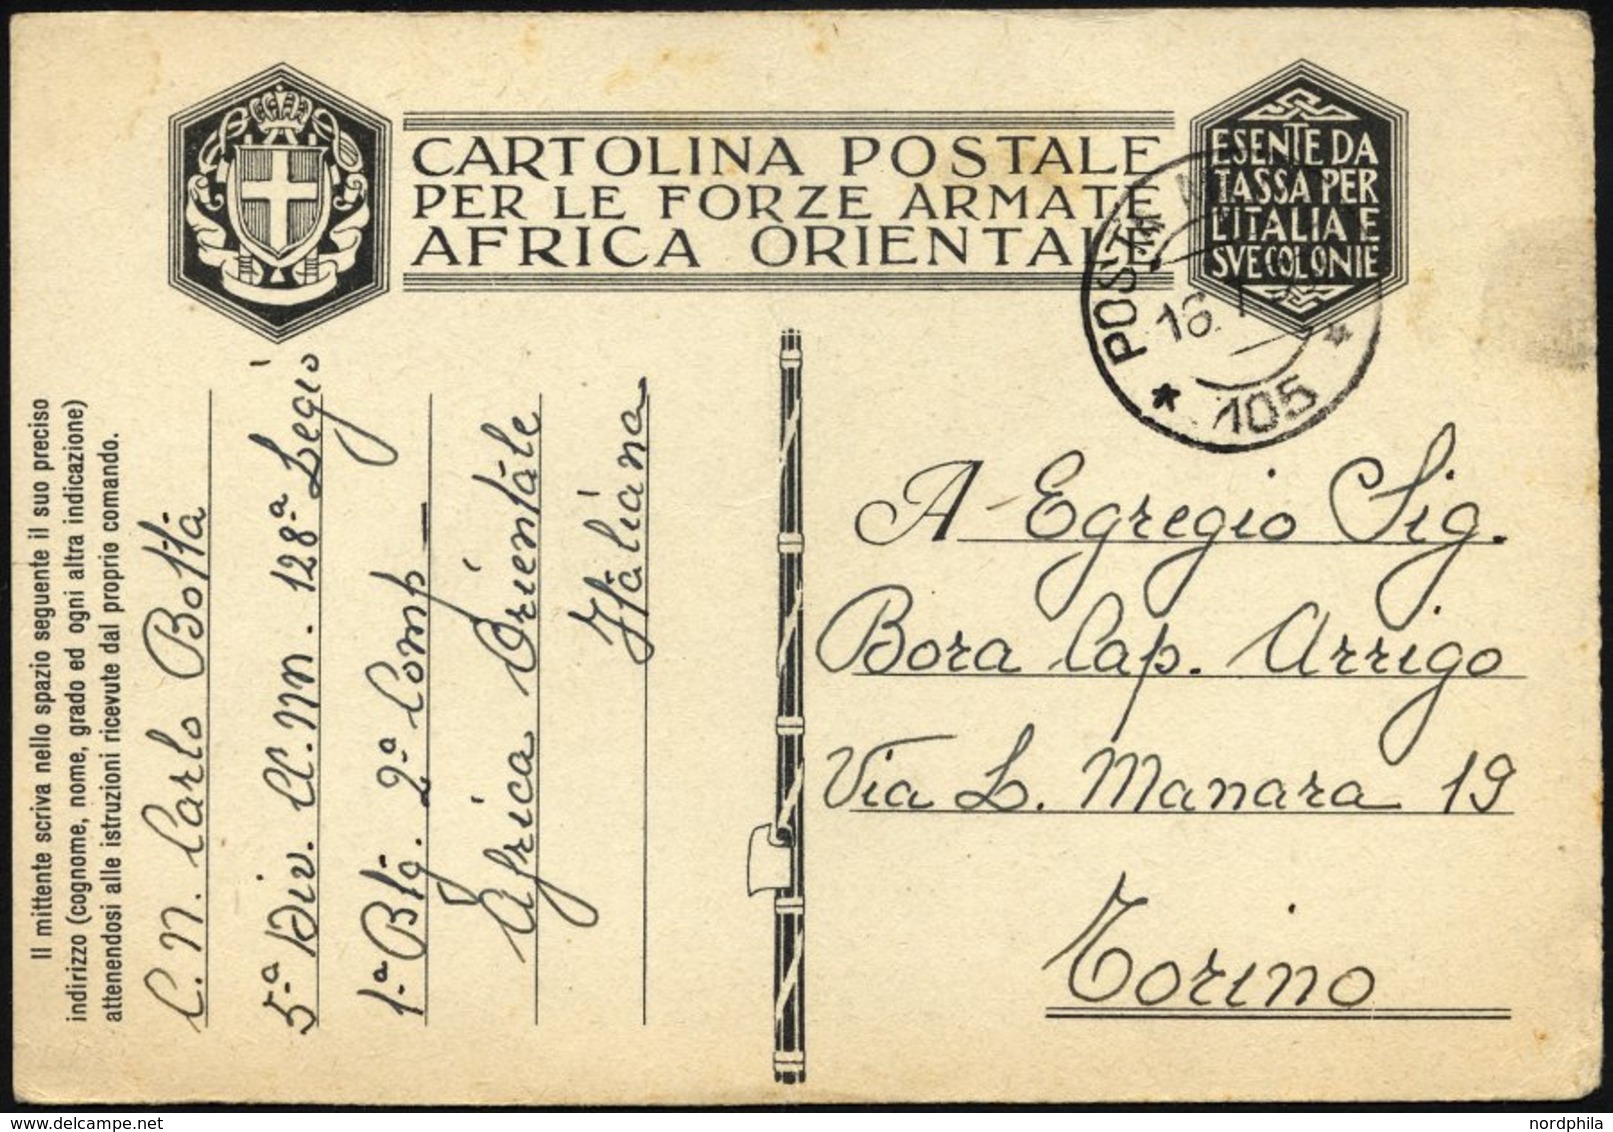 CARTOLINA POSTALE
PER LE FORZE ARMATE
AFRICA ORIENTALE
ESENTE DA
TASSA PER
L'ITALIA E
SVE COLONIE
POSTA
16.
* 105 *
Il mittente scriva nello spazio seguente il suo preciso
indirizzo (cognome, nome, grado ed ogni altra indicazione)
attenendosi alle istruzioni ricevute dal proprio comando.
C.N. Carlo Botta
5ª Div. CC.NN. 128ª Legio
1ª Btg. 2ª Comp
Africa Orientale
Italiana
A Egregio Sig.
Bora Cap. Arrigo
Via L. Manara 19
Torino
nordphila